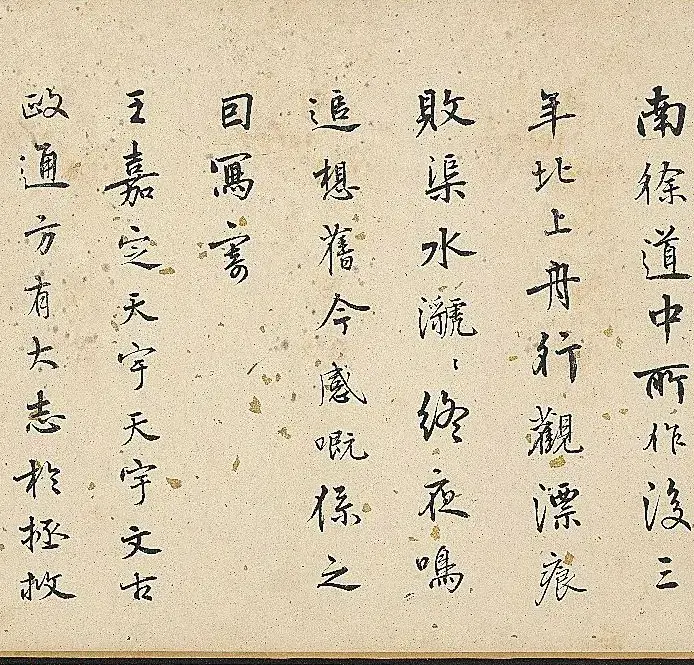 南徐道中所作後三
年北上舟行觀漂痕
敗渠水㶁〻終夜鳴
追想舊今感嘅係之
囙寫寄
王嘉定天宇天宇文古
政通方有大志於拯救